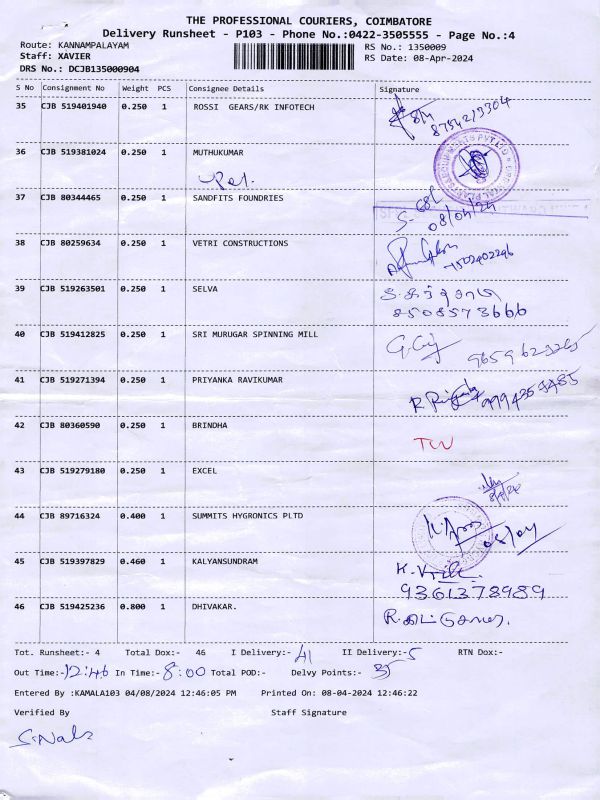 THE PROFESSIONAL COURIERS, COIMBATORE
Delivery Runsheet - P103 - Phone No.:0422-3505555 - Page No.:4
Route: KANNAMPALAYAM
RS No.: 1350009
Staff: XAVIER
RS Date: 08-Apr-2024
DRS No.: DCJB135000904
S No Consignment No Weight PCS Consignee Details Signature
35 CJB 519401940 0.250 1 ROSSI GEARS/RK INFOTECH
36 CJB 519381024 0.250 1 MUTHUKUMAR
37 CJB 80344465 0.250 1 SANDFITS FOUNDRIES
08/04/24
38 CJB 80259634 0.250 1 VETRI CONSTRUCTIONS
39 CJB 519263501 0.250 1 SELVA
8508573666
40 CJB 519412825 0.250 1 SRI MURUGAR SPINNING MILL
41 CJB 519271394 0.250 1 PRIYANKA RAVIKUMAR
42 CJB 80360590 0.250 1 BRINDHA
43 CJB 519279180 0.250 1 EXCEL
44 CJB 89716324 0.400 1 SUMMITS HYGRONICS PLTD
08/04
45 CJB 519397829 0.460 1 KALYANSUNDRAM
9361378989
46 CJB 519425236 0.800 1 DHIVAKAR.
Tot. Runsheet:- 4 Total Dox:- 46 I Delivery:- 41 II Delivery:- 5 RTN Dox:-
Out Time:- 12:46 In Time:- 8:00 Total POD:- Delvy Points:- 35
Entered By :KAMALA103 04/08/2024 12:46:05 PM Printed On: 08-04-2024 12:46:22
Verified By Staff Signature